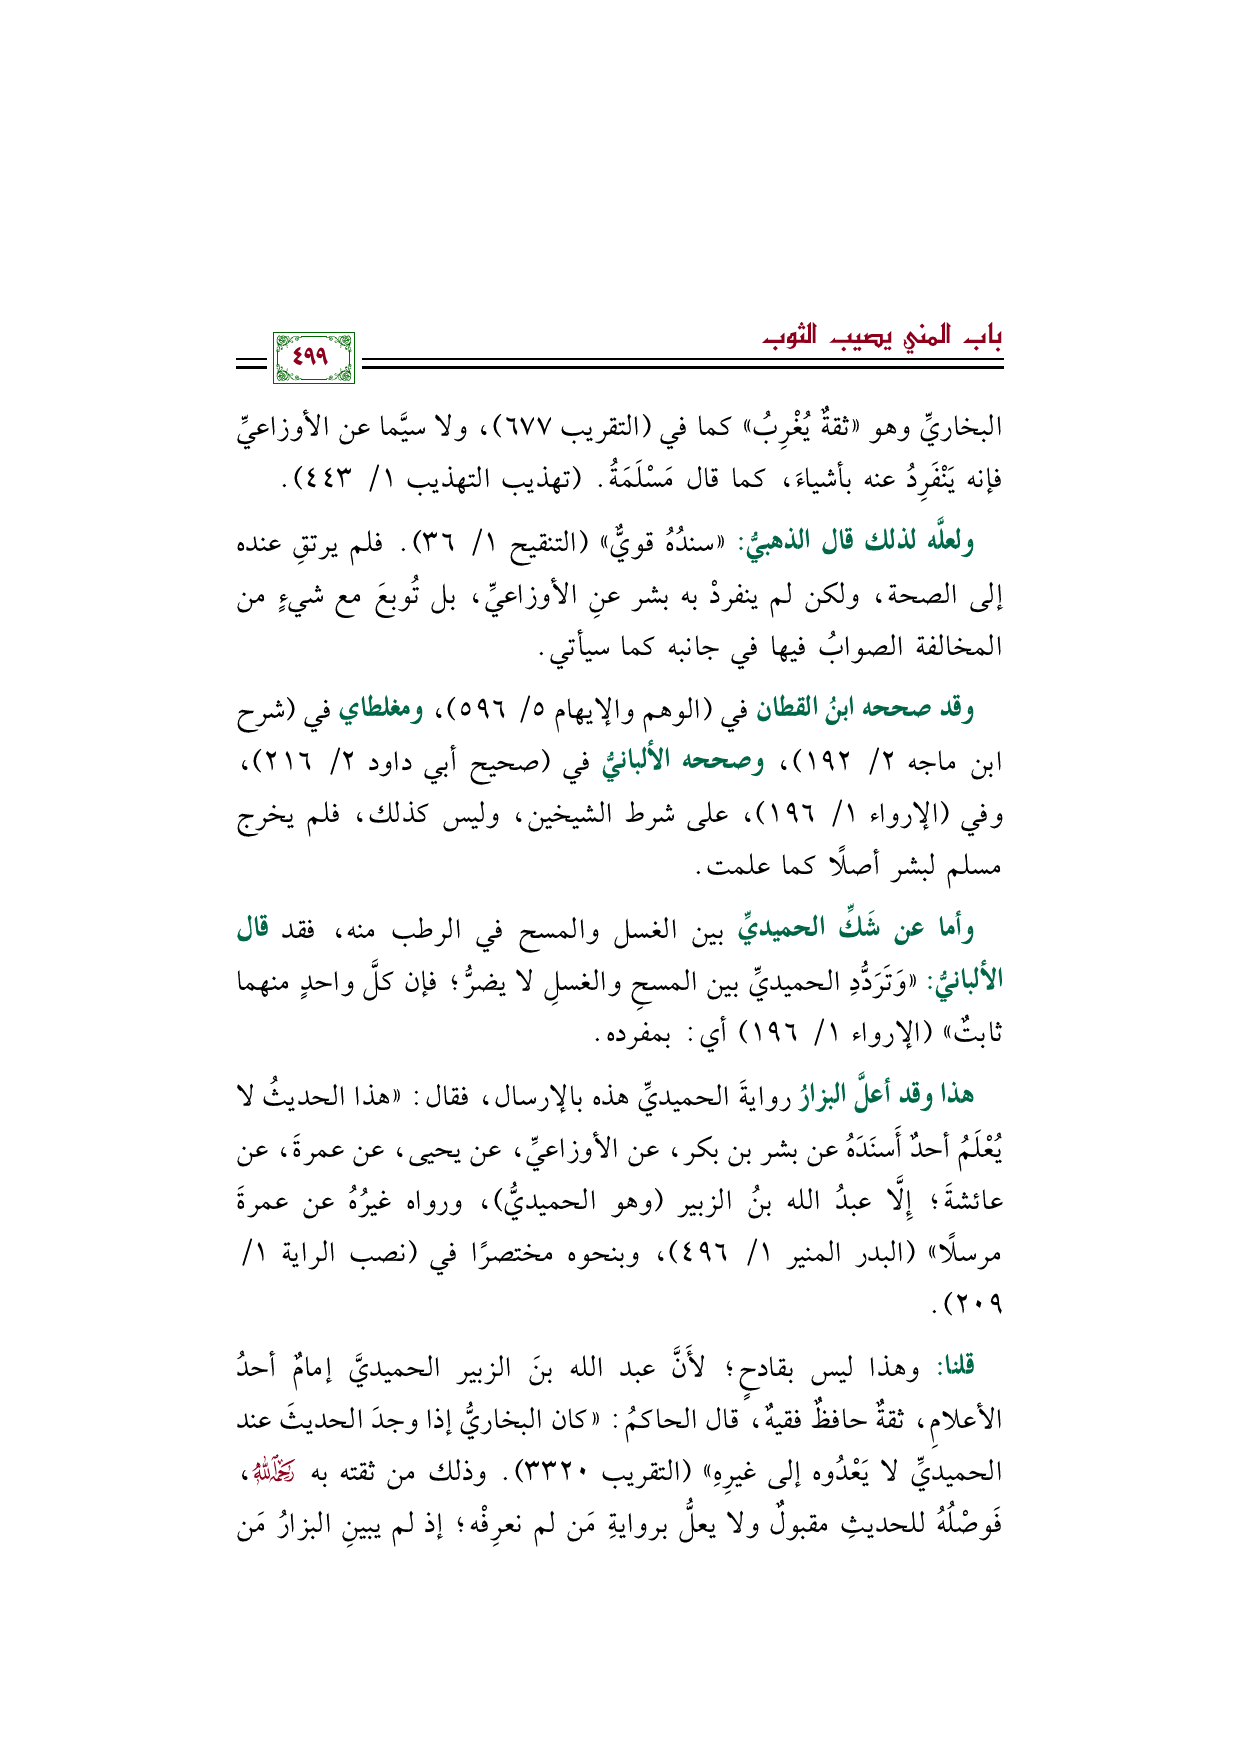 باب المني يصيب الثوب
٤٩٩
البخاريِّ وهو «ثقةٌ يُغْرِبُ» كما في (التقريب ٦٧٧)، ولا سيَّما عن الأوزاعيِّ
فإنه يَنْفَرِدُ عنه بأشياءَ، كما قال مَسْلَمَةُ. (تهذيب التهذيب ١/ ٤٤٣).
ولعلَّه لذلك قال الذهبيُّ: «سندُهُ قويٌّ» (التنقيح ١/ ٣٦). فلم يرتقِ عنده
إلى الصحة، ولكن لم ينفردْ به بشر عنِ الأوزاعيِّ، بل تُوبعَ مع شيءٍ من
المخالفة الصوابُ فيها في جانبه كما سيأتي.
وقد صححه ابنُ القطان في (الوهم والإيهام ٥/ ٥٩٦)، ومغلطاي في (شرح
ابن ماجه ٢/ ١٩٢)، وصححه الألبانيُّ في (صحيح أبي داود ٢/ ٢١٦)،
وفي (الإرواء ١/ ١٩٦)، على شرط الشيخين، وليس كذلك، فلم يخرج
مسلم لبشر أصلًا كما علمت.
وأما عن شَكِّ الحميديِّ بين الغسل والمسح في الرطب منه، فقد قال
الألبانيُّ: «وَتَرَدُّدِ الحميديِّ بين المسحِ والغسلِ لا يضرُّ؛ فإن كلَّ واحدٍ منهما
ثابتٌ» (الإرواء ١/ ١٩٦) أي: بمفرده.
هذا وقد أعلَّ البزارُ روايةَ الحميديِّ هذه بالإرسال، فقال: «هذا الحديثُ لا
يُعْلَمُ أحدٌ أَسنَدَهُ عن بشر بن بكر، عن الأوزاعيِّ، عن يحيى، عن عمرةَ، عن
عائشةَ؛ إِلَّا عبدُ الله بنُ الزبير (وهو الحميديُّ)، ورواه غيرُهُ عن عمرةَ
مرسلًا» (البدر المنير ١/ ٤٩٦)، وبنحوه مختصرًا في (نصب الراية ١/
٢٠٩).
قلنا: وهذا ليس بقادحٍ؛ لأَنَّ عبد الله بنَ الزبير الحميديَّ إمامٌ أحدُ
الأعلامِ، ثقةٌ حافظٌ فقيهٌ، قال الحاكمُ: «كان البخاريُّ إذا وجدَ الحديثَ عند
الحميديِّ لا يَعْدُوه إلى غيرِهِ» (التقريب ٣٣٢٠). وذلك من ثقته به رَحِمَهُ اللهُ،
فَوصْلُهُ للحديثِ مقبولٌ ولا يعلُّ بروايةِ مَن لم نعرِفْه؛ إذ لم يبينِ البزارُ مَن